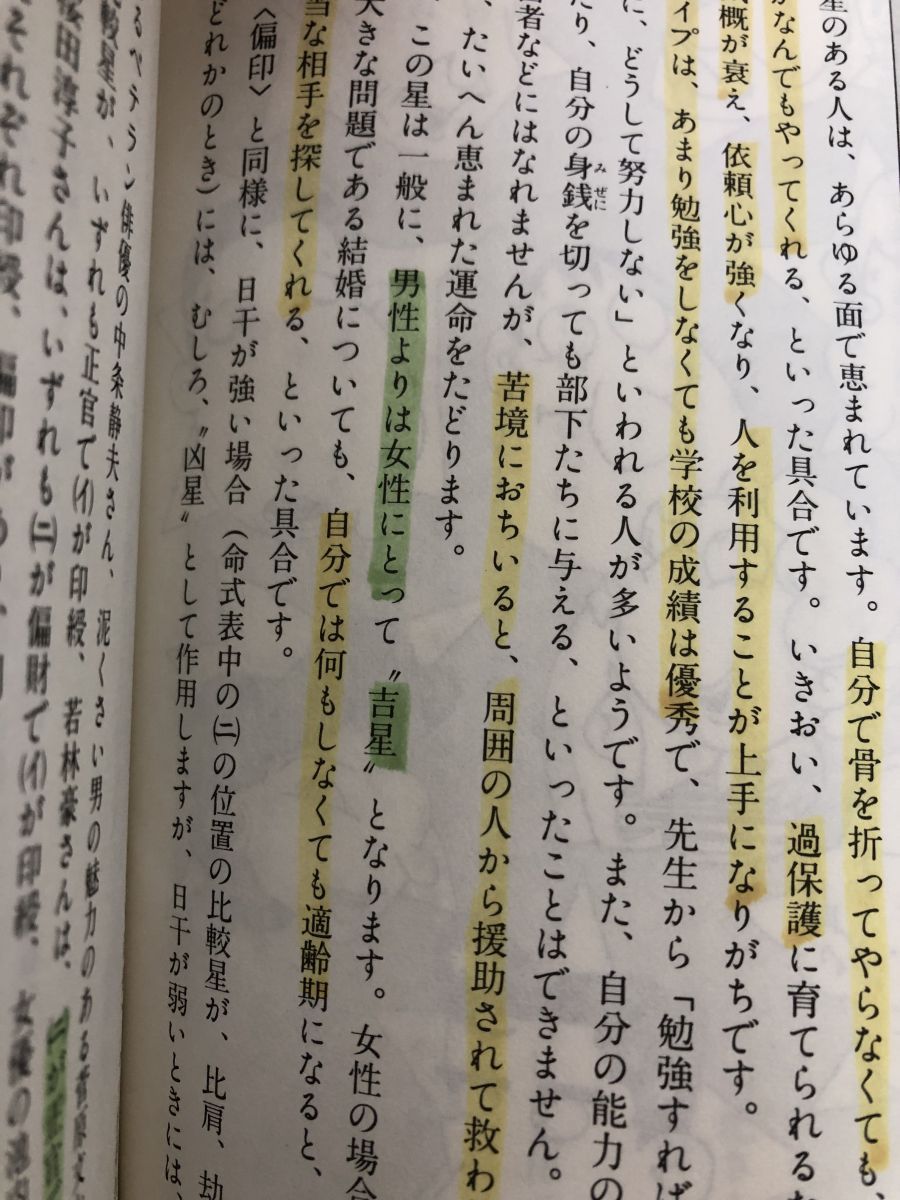 星のある人は、あらゆる面で恵まれています。自分で骨を折ってやらなくても
なんでもやってくれる、といった具合です。いきおい、過保護に育てられる
概が衰え、依頼心が強くなり、人を利用することが上手になりがちです。
イプは、あまり勉強をしなくても学校の成績は優秀で、先生から「勉強すれば
に、どうして努力しない」といわれる人が多いようです。また、自分の能力の
たり、自分の身銭を切っても部下たちに与える、といったことはできません。
みぜに
者などにはなれませんが、苦境におちいると、周囲の人から援助されて救わ
、たいへん恵まれた運命をたどります。
、この星は一般に、男性よりは女性にとって〝吉星〟となります。女性の場合
大きな問題である結婚についても、自分では何もしなくても適齢期になると、
当な相手を探してくれる、といった具合です。
〈偏印〉と同様に、日干が強い場合（命式表中の㈡の位置の比較星が、比肩、劫
どれかのとき）には、むしろ、〝凶星〟として作用しますが、日干が弱いときには、
るベテラン俳優の中条静夫さん、泥くさい男の魅力のある菅原文
較星が、いずれも正官で(イ)が印綬、若林豪さんは、
桜田淳子さんは、いずれも㈡が偏財で(イ)が印綬、女優の
それぞれ印綬、偏印が